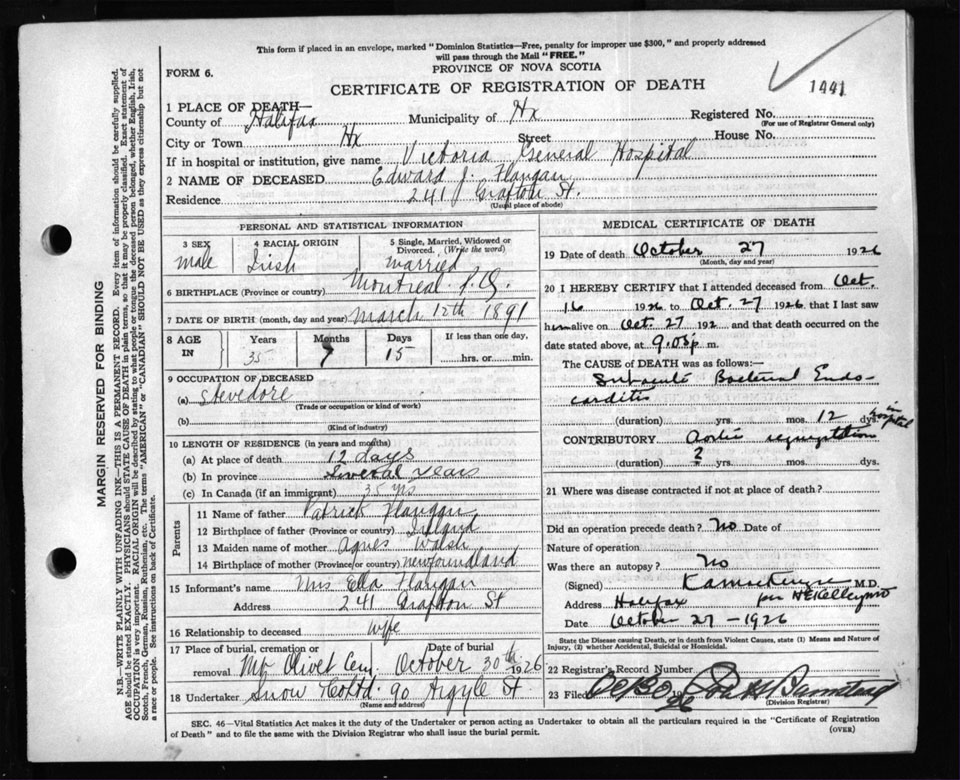 This form if placed in an envelope, marked "Dominion Statistics—Free, penalty for improper use $300," and properly addressed
will pass through the Mail "FREE."
FORM 6.
PROVINCE OF NOVA SCOTIA
CERTIFICATE OF REGISTRATION OF DEATH
1441
1 PLACE OF DEATH—
County of Halifax Municipality of Hx Registered No.
(For use of Registrar General only)
City or Town Hx Street House No.
If in hospital or institution, give name Victoria General Hospital
2 NAME OF DECEASED Edward J. Flangan
Residence 241 Grafton St.
(Usual place of abode)
PERSONAL AND STATISTICAL INFORMATION
3 SEX 4 RACIAL ORIGIN 5 Single, Married, Widowed or Divorced. (Write the word)
Male Irish Married
6 BIRTHPLACE (Province or country) Montreal P.Q.
7 DATE OF BIRTH (month, day and year) March 12th 1891
8 AGE IN Years Months Days If less than one day,
35 7 15 hrs. or min.
9 OCCUPATION OF DECEASED
(a) Stevedore
(Trade or occupation or kind of work)
(b)
(Kind of industry)
10 LENGTH OF RESIDENCE (in years and months)
(a) At place of death 12 days
(b) In province Several years
(c) In Canada (if an immigrant) 35 yrs
Parents
11 Name of father Patrick Flangan
12 Birthplace of father (Province or country) Ireland
13 Maiden name of mother Agnes Walsh
14 Birthplace of mother (Province or country) Newfoundland
15 Informant's name Mrs Ella Flangan
Address 241 Grafton St
16 Relationship to deceased Wife
17 Place of burial, cremation or removal Date of burial
Mt Olivet Cem. October 30th 1926
18 Undertaker Snow & Co Ltd 90 Argyle St
(Name and address)
MEDICAL CERTIFICATE OF DEATH
19 Date of death October 27 1926
(Month, day and year)
20 I HEREBY CERTIFY that I attended deceased from Oct.
16 1926 to Oct. 27 1926 that I last saw
him alive on Oct. 27 192 and that death occurred on the
date stated above, at 9.05 p. m.
The CAUSE of DEATH was as follows:—
Subacute Bacterial Endo-
carditis
(duration) yrs. mos. 12 dys. in hospital
CONTRIBUTORY Aortic regurgitation
(duration) ? yrs. mos. dys.
21 Where was disease contracted if not at place of death?
Did an operation precede death? No Date of
Nature of operation
Was there an autopsy? No
(Signed) M.D.
Address Halifax per
Date October 27 - 1926
State the Disease causing Death, or in death from Violent Causes, state (1) Means and Nature of
Injury, (2) whether Accidental, Suicidal or Homicidal.
22 Registrar's Record Number
23 Filed
(Division Registrar)
SEC. 46—Vital Statistics Act makes it the duty of the Undertaker or person acting as Undertaker to obtain all the particulars required in the "Certificate of Registration
of Death" and to file the same with the Division Registrar who shall issue the burial permit.
(OVER)
MARGIN RESERVED FOR BINDING
N.B.—WRITE PLAINLY WITH UNFADING INK—THIS IS A PERMANENT RECORD. Every item of information should be carefully supplied.
AGE should be stated EXACTLY. PHYSICIANS should STATE CAUSE OF DEATH in plain terms, so that it may be properly classified. Exact statement of
OCCUPATION is very important. RACIAL ORIGIN will be described by stating to what people or tongue the deceased person belonged, whether English, Irish,
Scotch, French, German, Russian, Ruthenian, etc. The terms "AMERICAN" or "CANADIAN" SHOULD NOT BE USED as they express citizenship but not
a race or people. See instructions on back of Certificate.